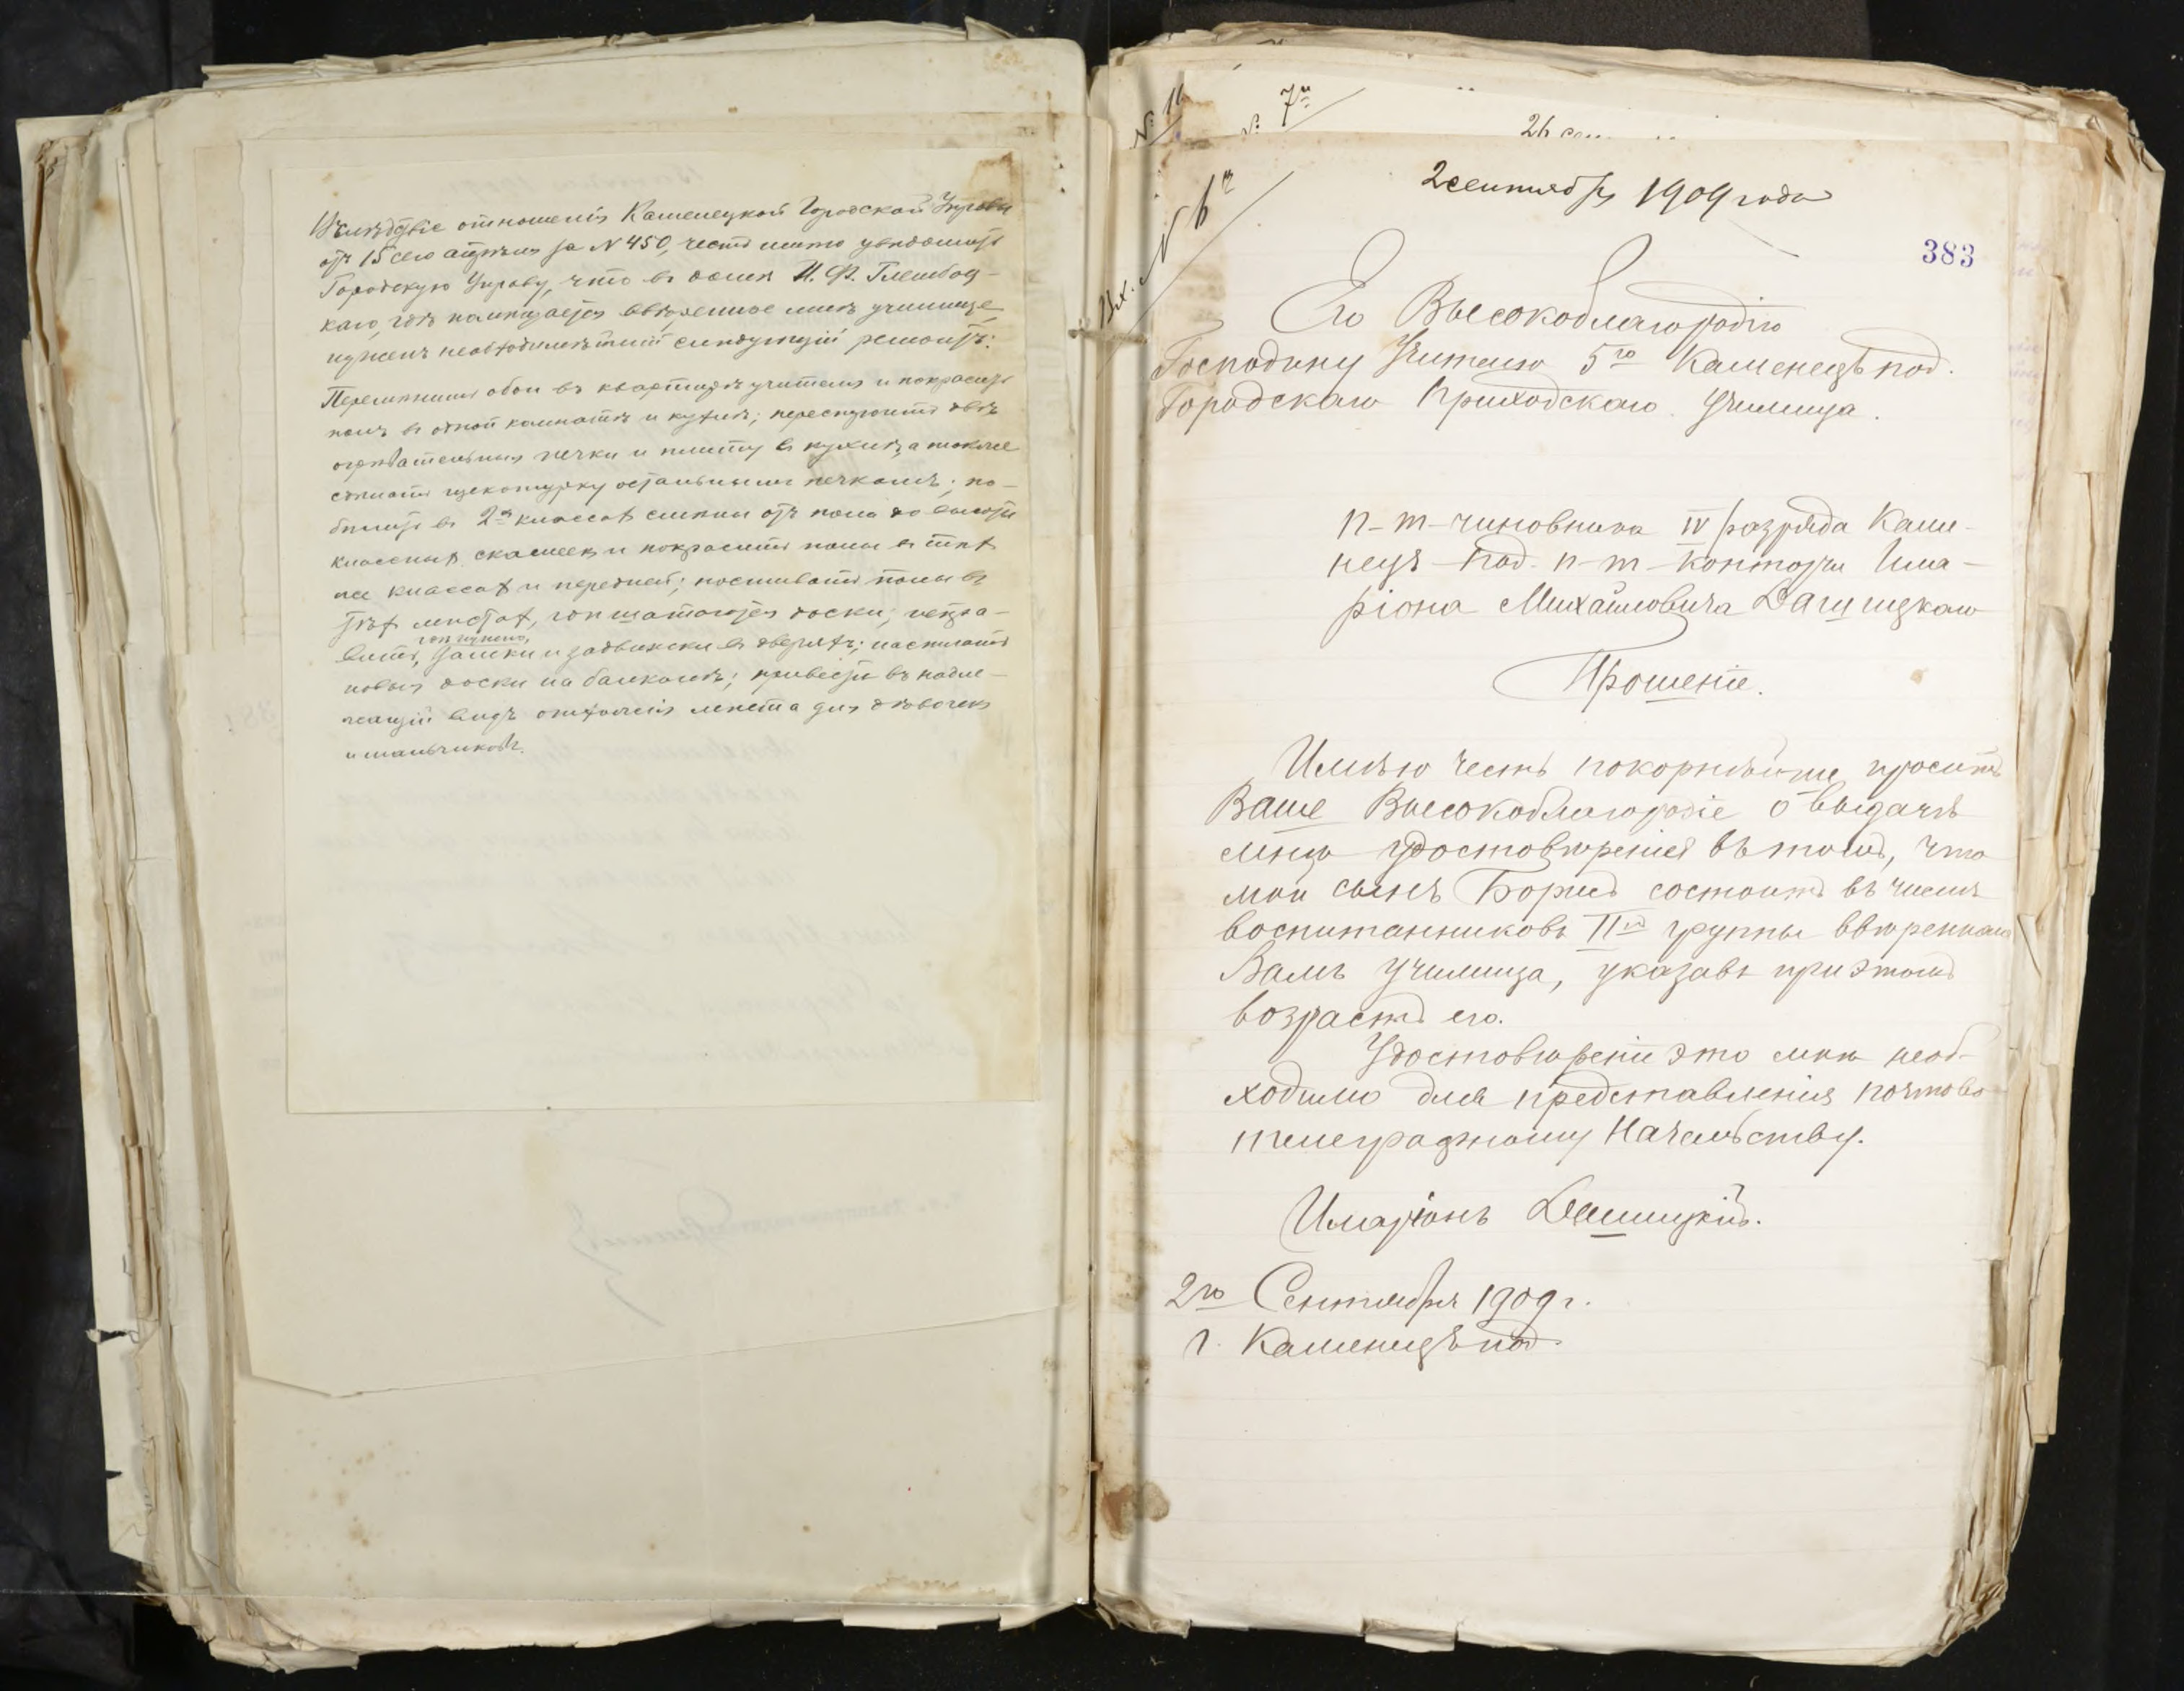 Вслѣдствіе отношенія Каменецкой Городской Управы
отъ 15 сего апрѣля за N 450, честь имѣю увѣдомить
Городскую Управу, что въ домѣ И. Ф.
каго, гдѣ помѣщается ввѣренное мнѣ училище,
нуженъ необходимѣйшій слѣдующій ремонтъ:
Перемѣнить обои въ квартирѣ учителя и покрасить
полъ въ одной комнатѣ и кухнѣ; двѣ
печки и плиту въ кухнѣ, а также
сдѣлать щекотурку остальнымъ печкамъ; по-
бѣлить въ 2хъ классахъ стѣны отъ пола до высоты
классныхъ скамеекъ и покрасить полы въ тѣхъ
же классахъ и передней; полы въ
тѣхъ мѣстахъ, гдѣ шатаются доски; испра-
гдѣ нужно,
вить, замки и задвижки въ дверяхъ; настлать
новыя доски на балконѣ; привести въ надле-
жащій видъ отхожія мѣста для дѣвочекъ
и мальчиковъ.
№ 11
№ 7й
26 сен
Вх. N 6й
2 сентября 1909 года
383
Его Высокоблагородію
Господину Учителю 5го Каменецъ под.
Городскаго Приходскаго Училища.
п-т-чиновника IV разряда Каме-
нецъ-Под. п-т-конторы Ила-
ріона Михайловича Дашицкаго
Прошеніе.
Имѣю честь покорнѣйше просить
Ваше Высокоблагородіе о выдачѣ
мнѣ удостовѣренія въ томъ, что
мой сынъ Борисъ состоитъ въ числѣ
воспитанниковъ IIй группы ввѣреннаго
Вамъ училища, указавъ при этомъ
возрастъ его.
Удостовѣреніе это мнѣ необ-
ходимо для представленія почтово-
телеграфному Начальству.
Иларіонъ Дашицкій.
2го Сентября 1909 г.
г. Каменецъ под.